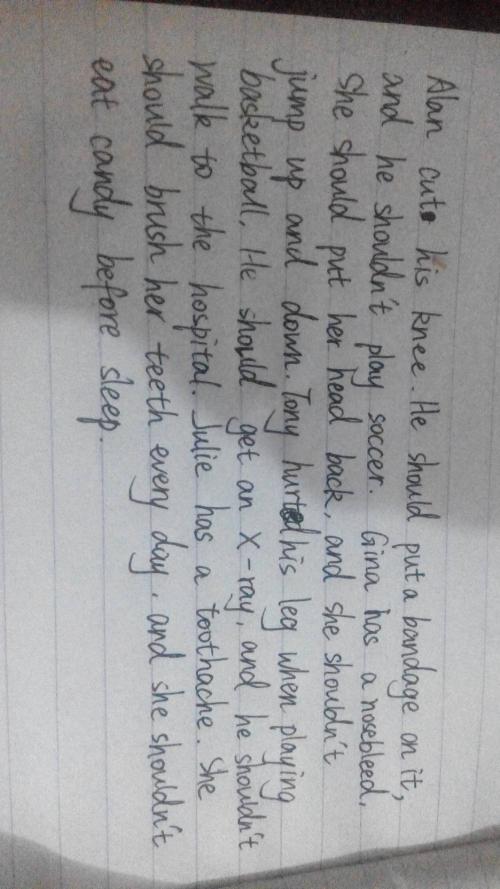 Alan cut his knee. He should put a bandage on it,
and he shouldn't play soccer. Gina has a nosebleed.
She should put her head back, and she shouldn't
jump up and down. Tony hurt his leg when playing
basketball. He should get an X-ray, and he shouldn't
walk to the hospital. Julie has a toothache. She
should brush her teeth every day, and she shouldn't
eat candy before sleep.